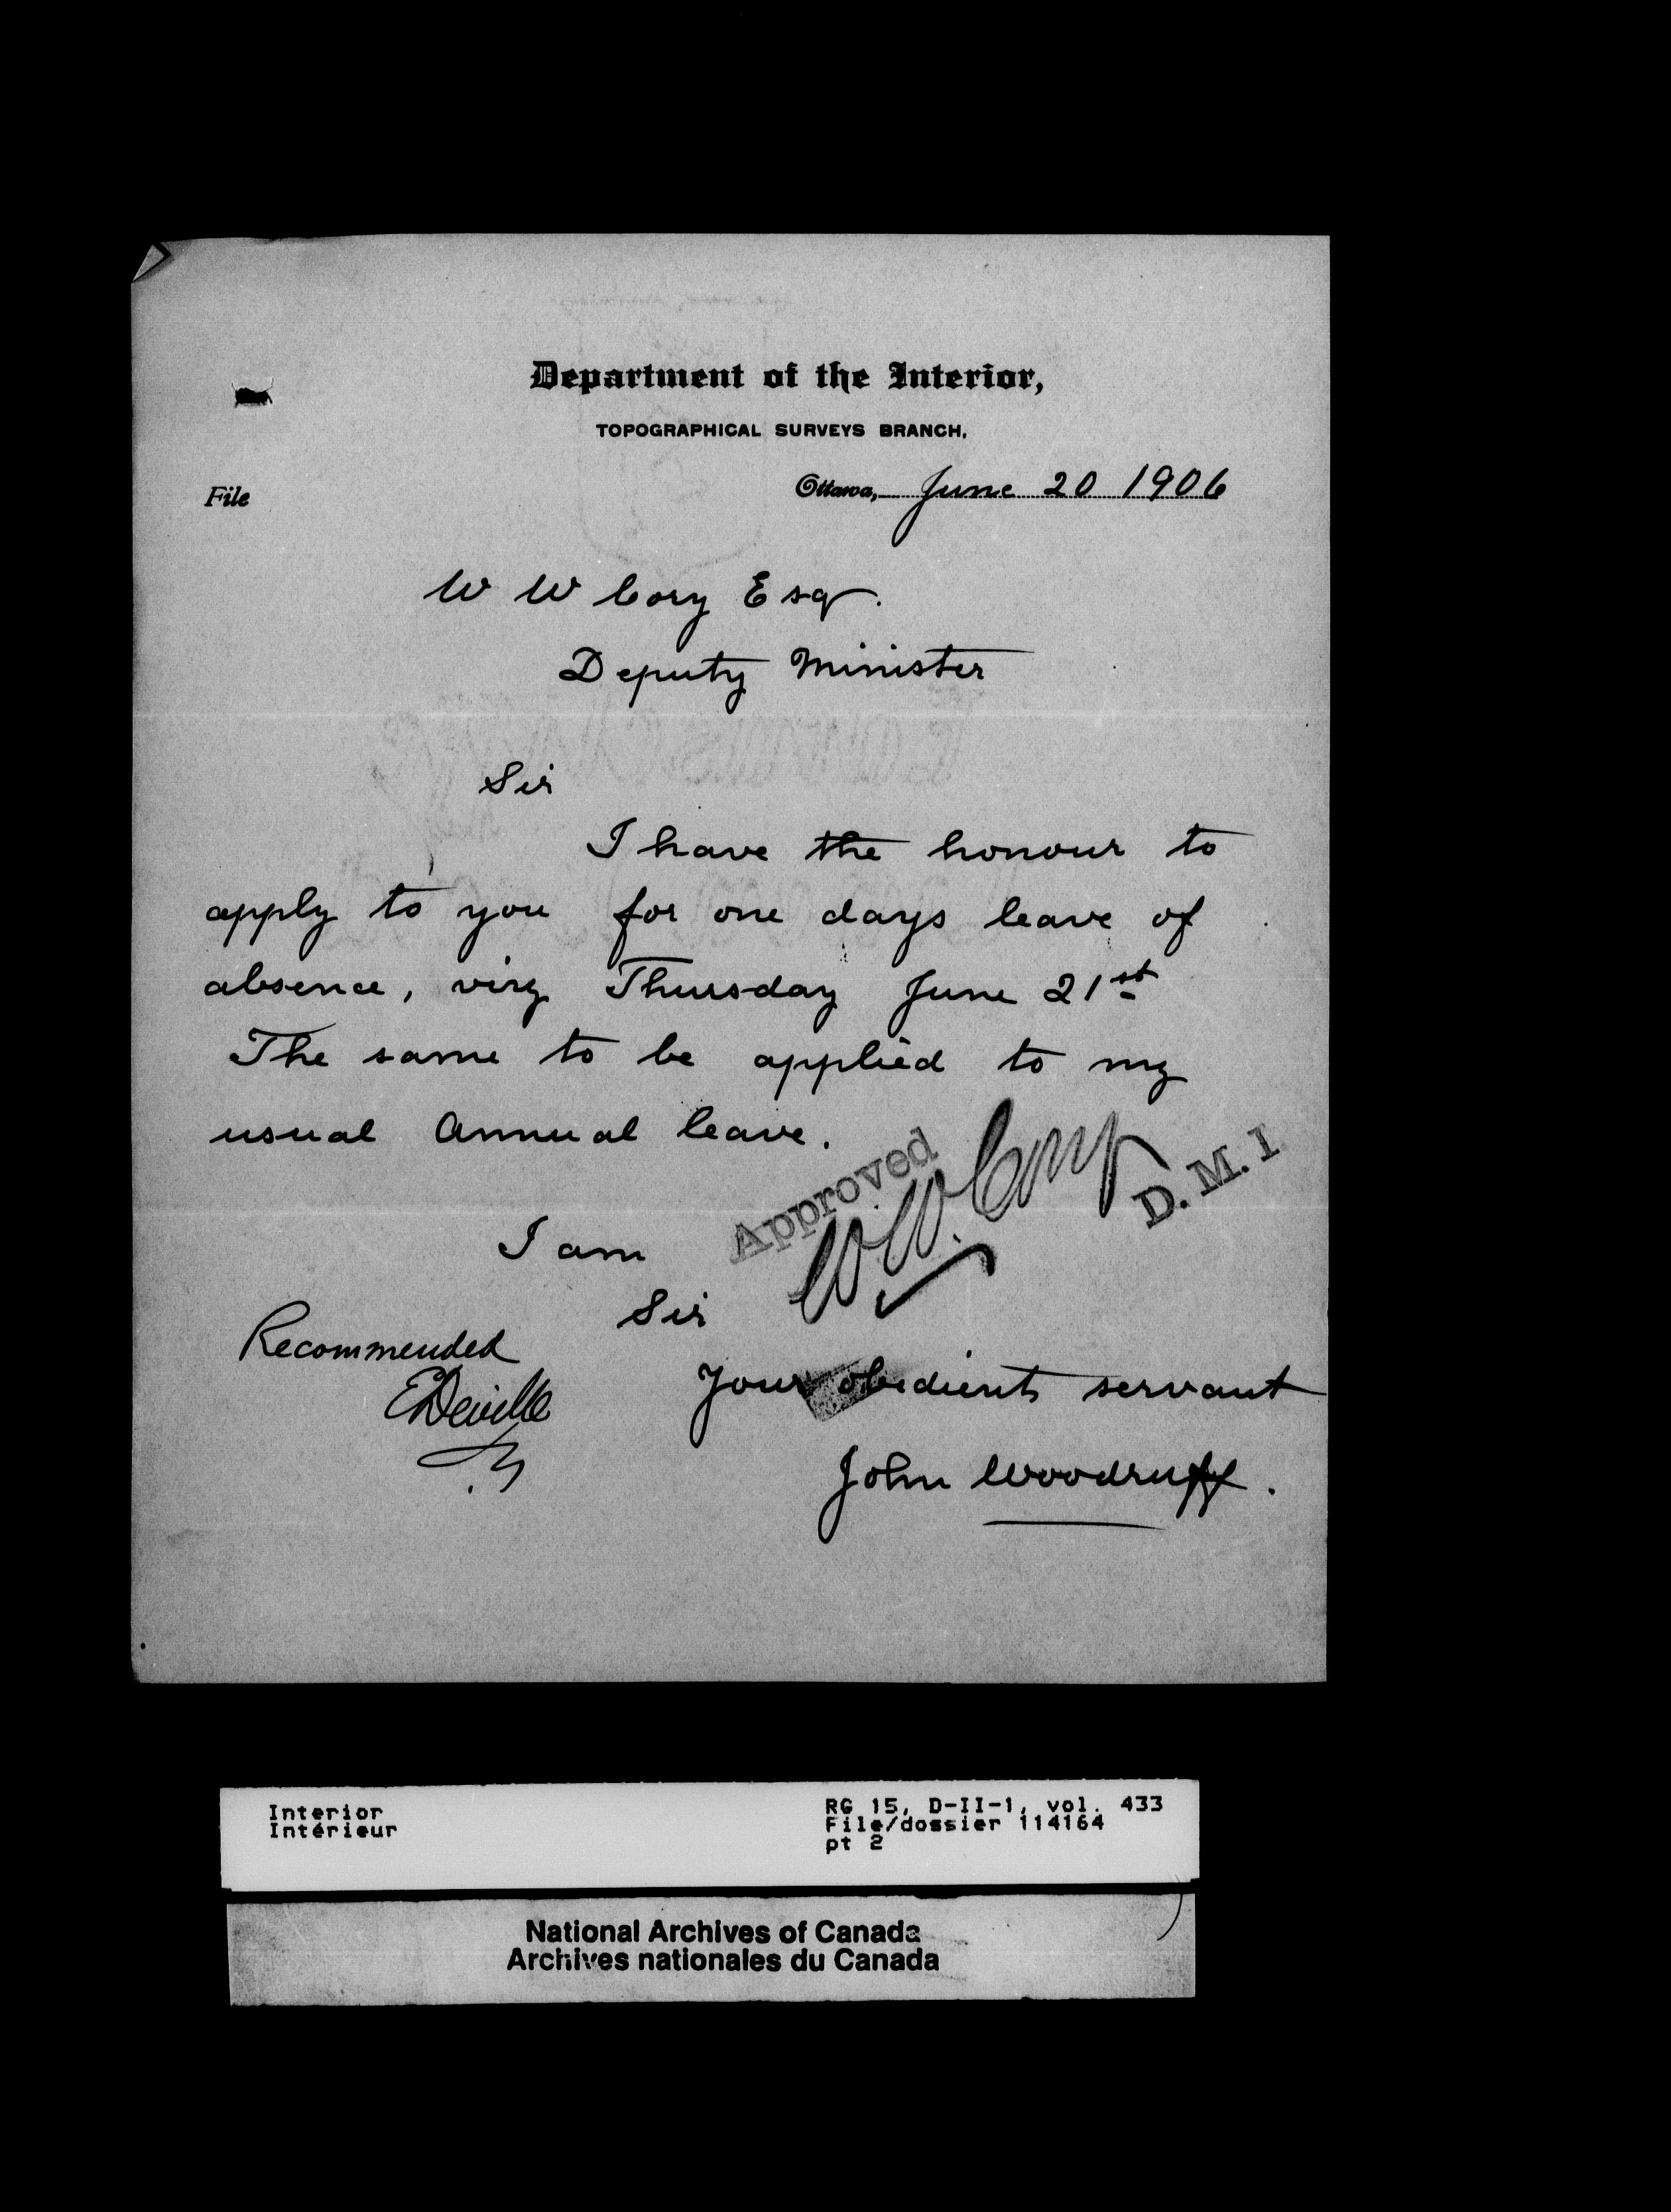 Department of the Interior,
TOPOGRAPHICAL SURVEYS BRANCH,
File
Ottawa, June 20 1906
W W Cory Esq.
Deputy Minister
Sir
I have the honour to
apply to you for one days leave of
absence, viz Thursday June 21st
The same to be applied to my
usual Annual leave.
Approved
W W. Cory
D. M. I
I am
Sir
Recommended
EDeville
Your obedient servant
John Woodruff.
Interior
Intérieur
RG 15, D-II-1, vol. 433
File/dossier 114164
pt 2
National Archives of Canada
Archives nationales du Canada